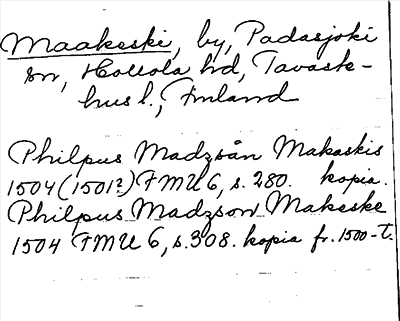 Maakeski, by, Padasjoki
sn, Hollola hd, Tavaste-
hus l., Finland
Philpus Madzsån Makaskis
1504 (1501?) FMU 6, s. 280. kopia.
Philpus Madzson Makeske
1504 FMU 6, s. 308. kopia fr. 1500-t.